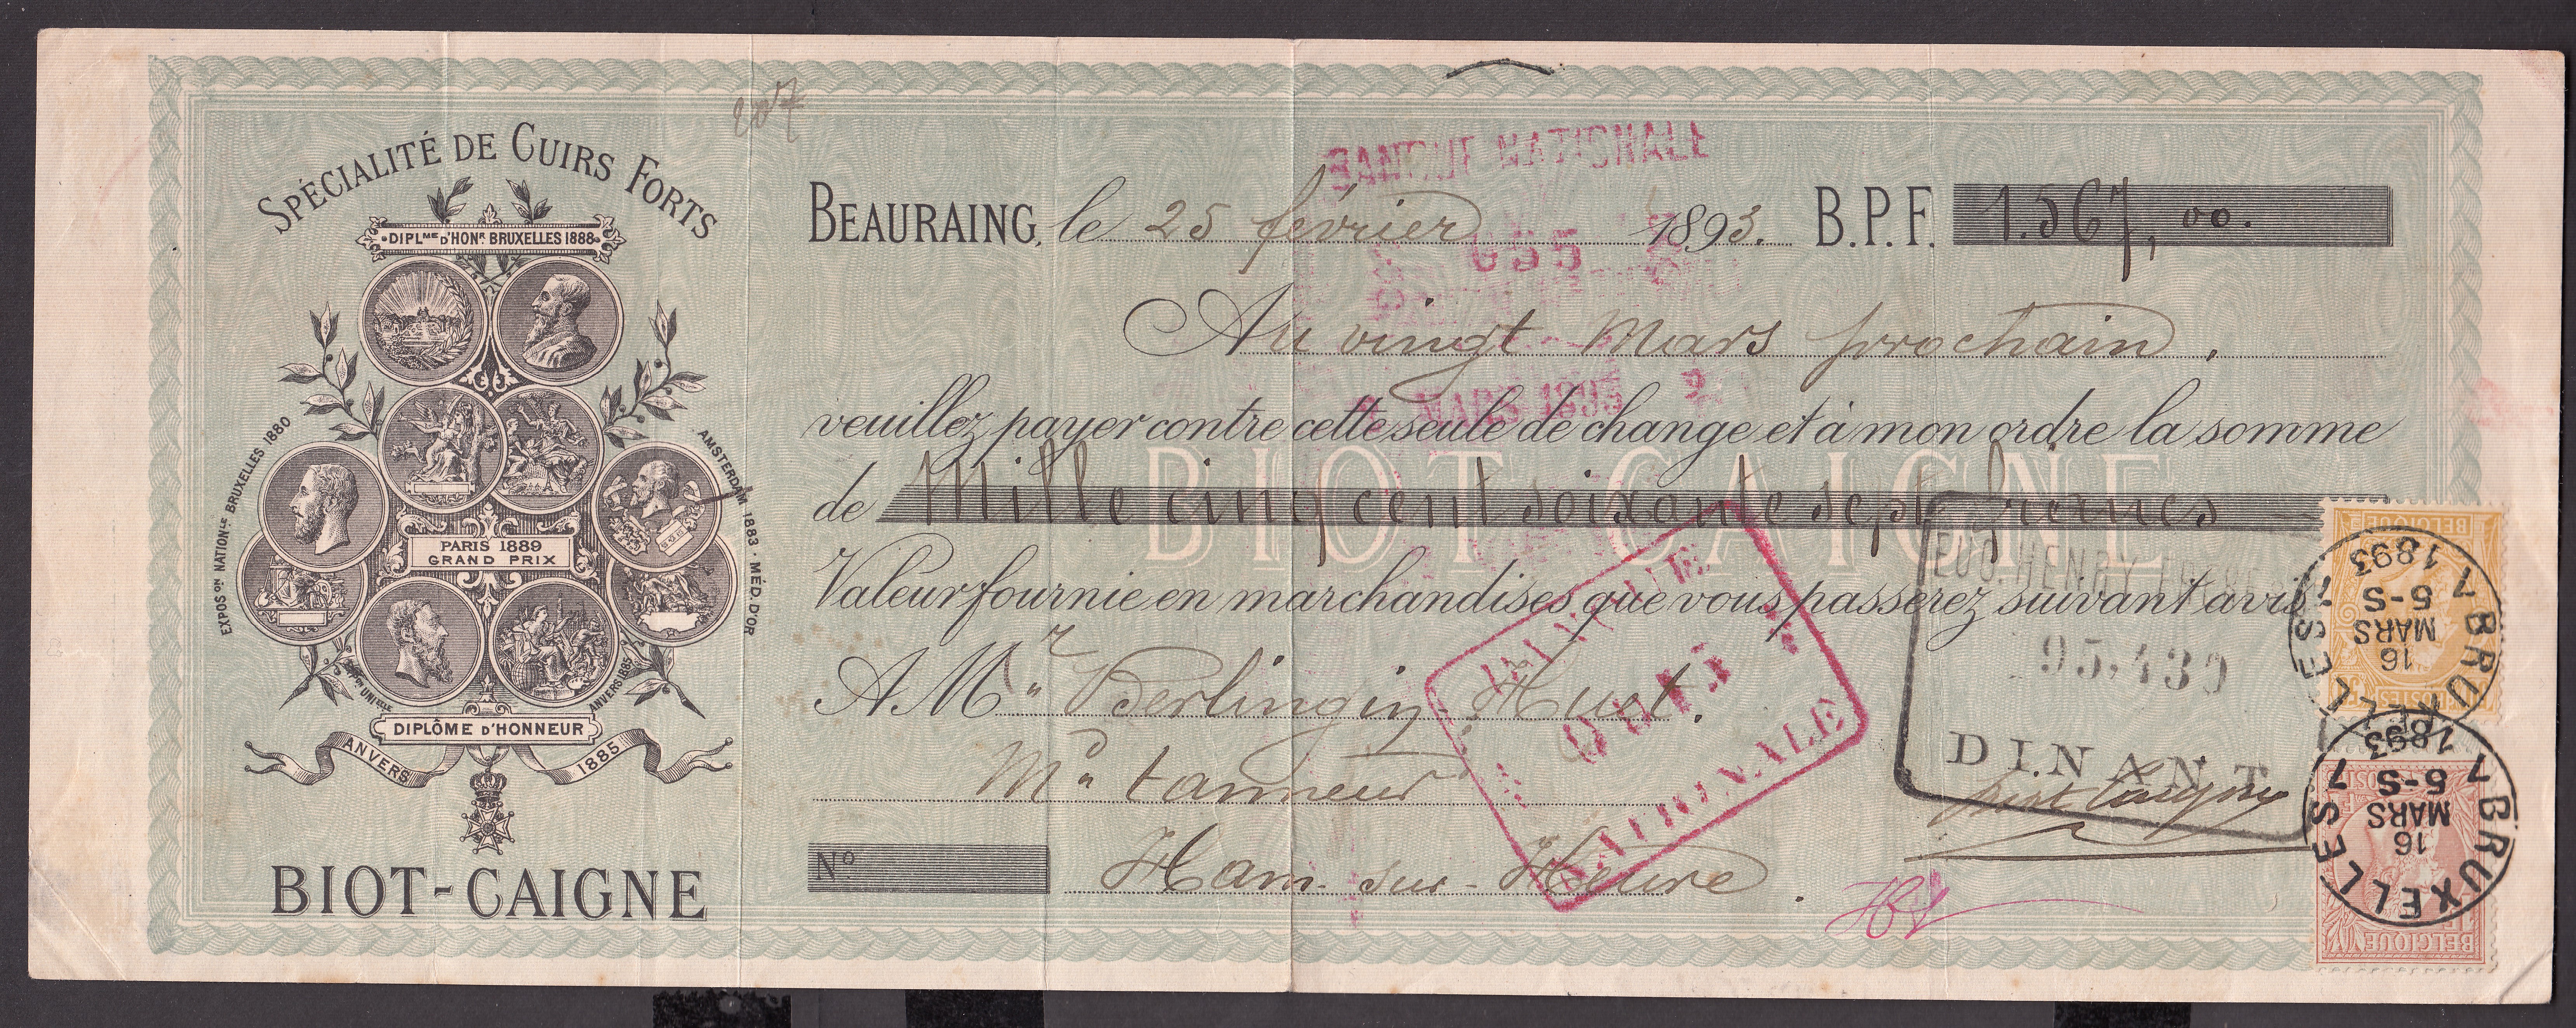 SPÉCIALITÉ DE CUIRS FORTS
DIPLME D'HONR. BRUXELLES 1888
EXPOSON NATIONLE BRUXELLES 1880
AMSTERDAM 1883 · MÉD. D'OR
PARIS 1889
GRAND PRIX
UNIELLE
ANVERS 1885
DIPLÔME D'HONNEUR
ANVERS 1885
BIOT-CAIGNE
207
BANQUE NATIONALE
BEAURAING, le 25 février 1893. B.P.F. 1.567, 00.
055
Au vingt Mars prochain.
MARS 1893
veuillez payer contre cette seule de change et à mon ordre la somme
BIOT-CAIGNE
de Mille cinq cent soixante sept francs
Valeur fournie en marchandises que vous passerez suivant avis
A Mr Berlingin-Hust.
Md tanneur
No Ham-sur-Heure.
BANQUE
NATIONALE
EUG. HENRY
95,430
DINANT
BELGIQUE
POSTES
BRUXELLES 7
16
MARS
5-S
1893
BRUXELLES 7
16
MARS
5-S
1893
BELGIQUE